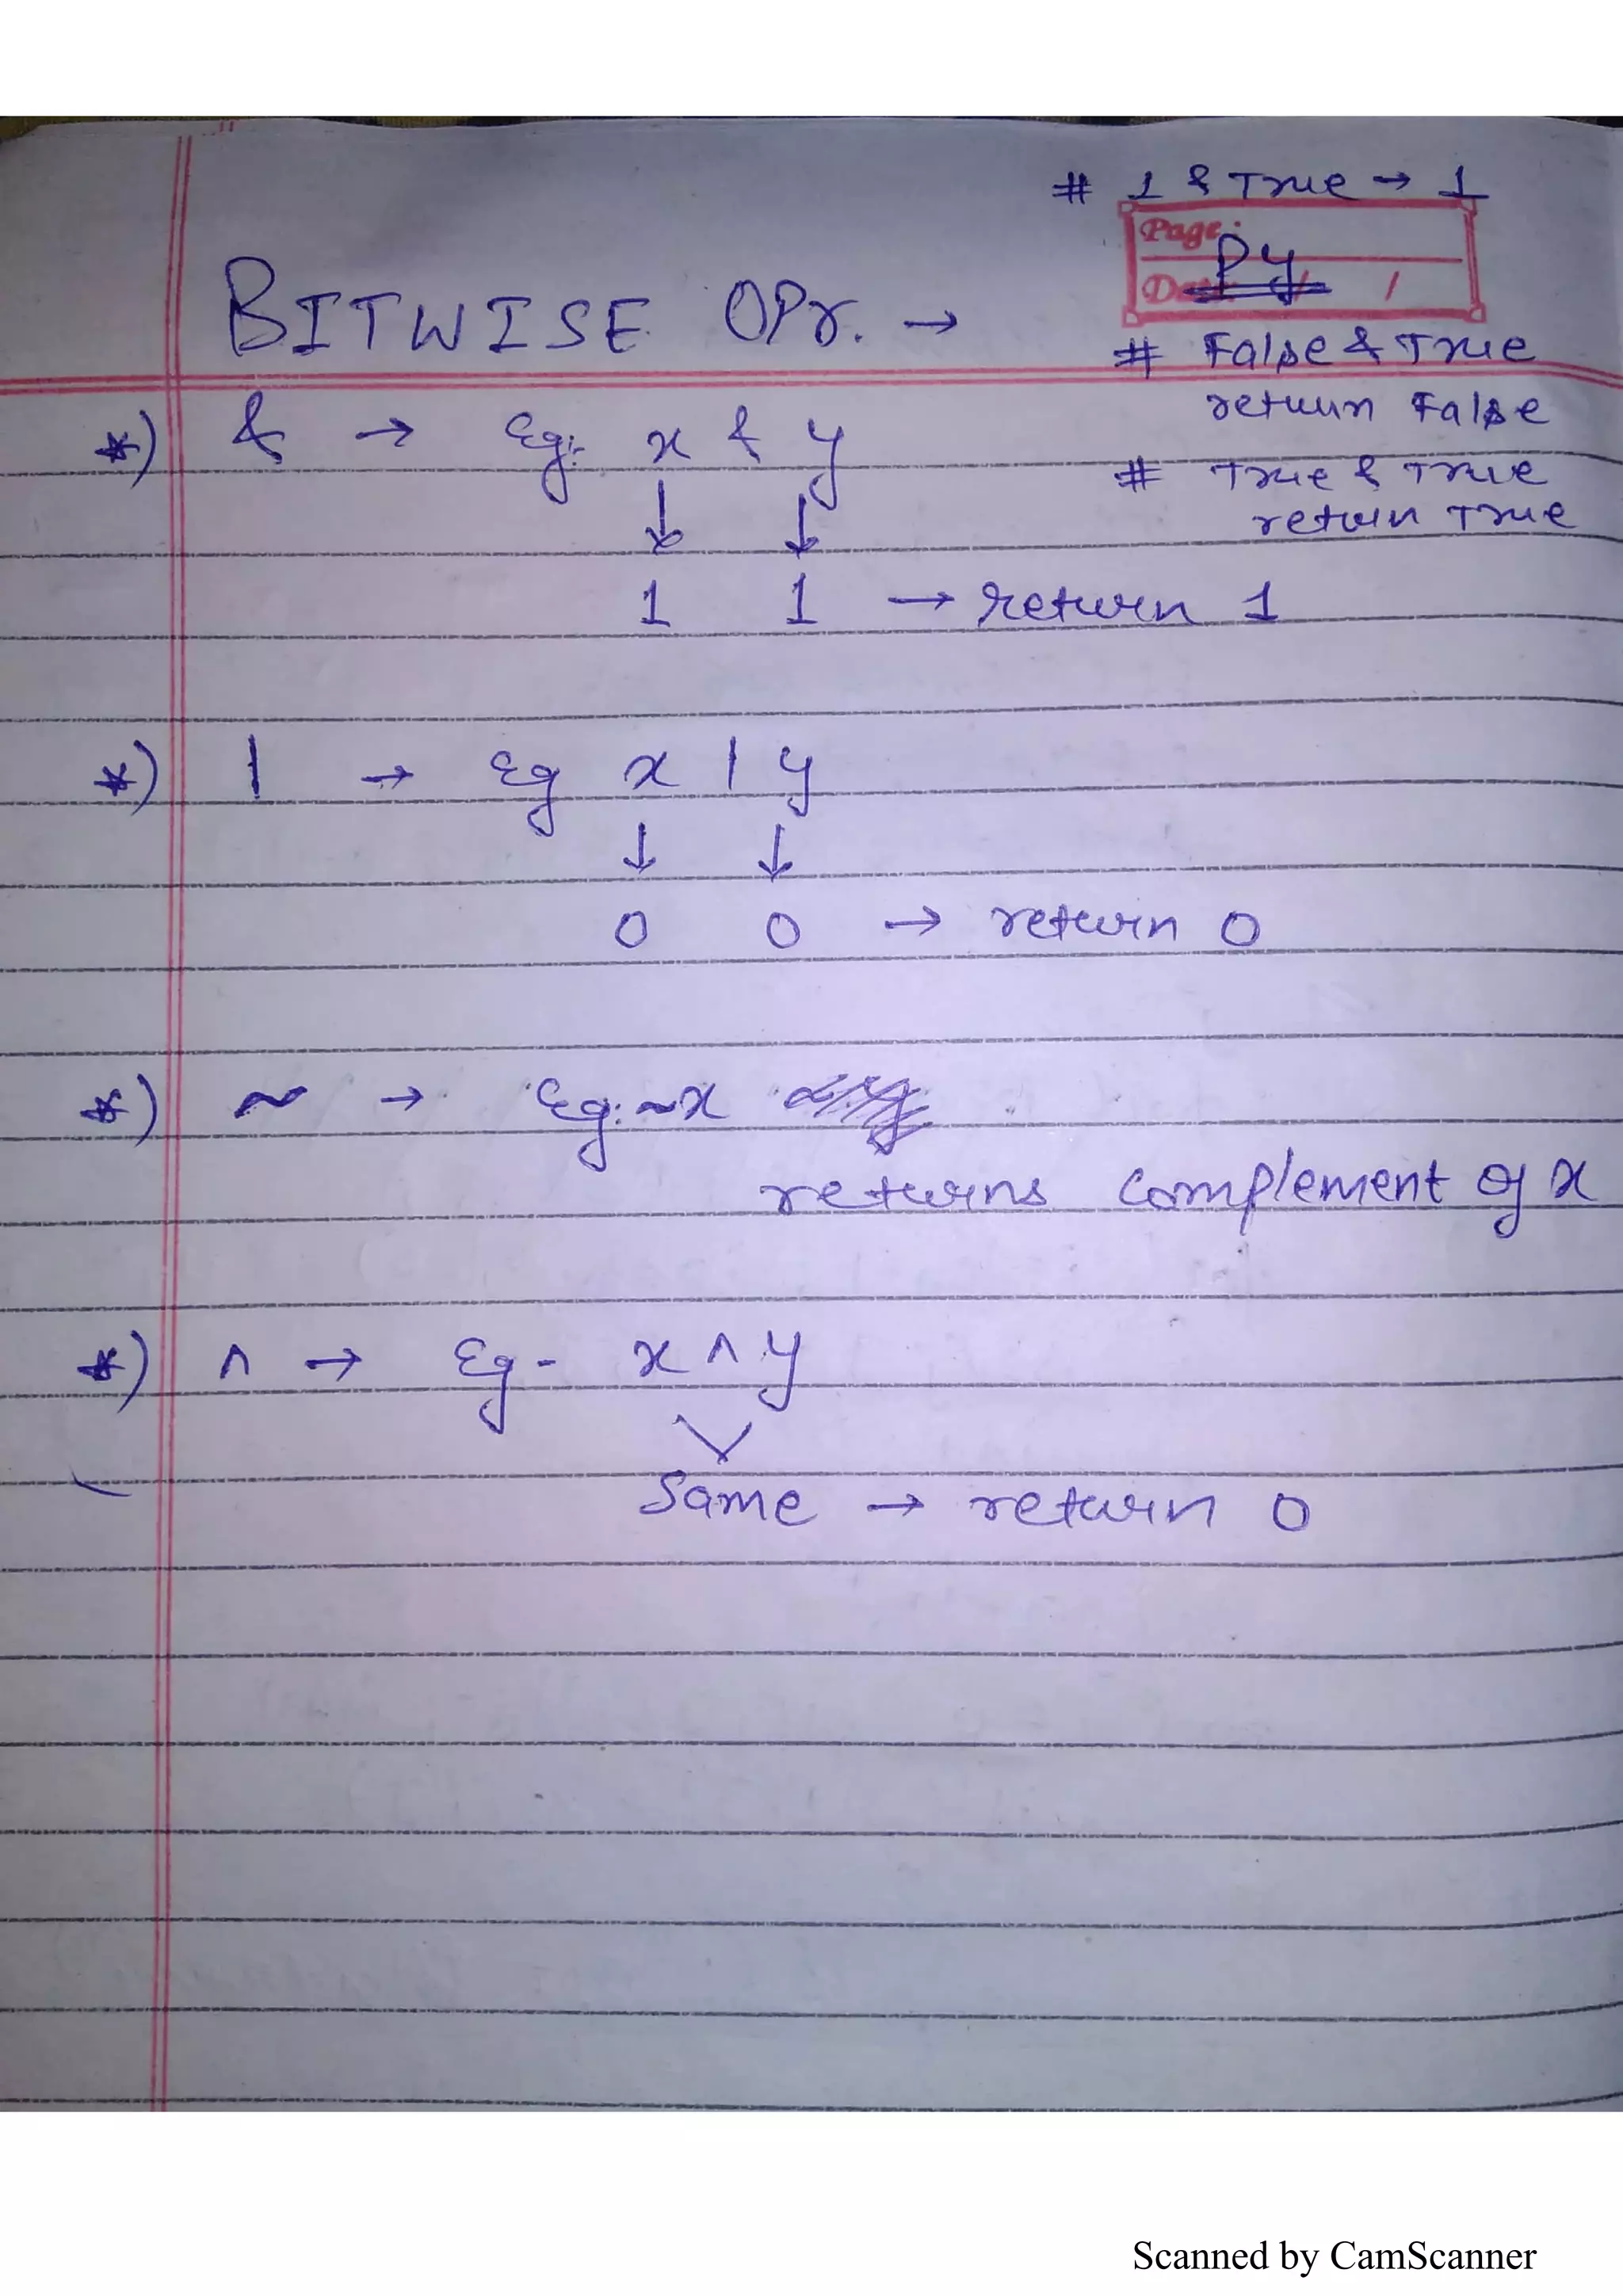 # 1 & True → 1
Page:
Py
Date: / /
BITWISE OPr. →
# False & True
return False
# True & True
return True
*) & → Eg:- x & y
↓ ↓
1 1 → return 1
*) | → Eg x | y
↓ ↓
0 0 → return 0
*) ~ → Eg: ~x
returns complement of x
*) ^ → Eg - x ^ y
Same → return 0
Scanned by CamScanner